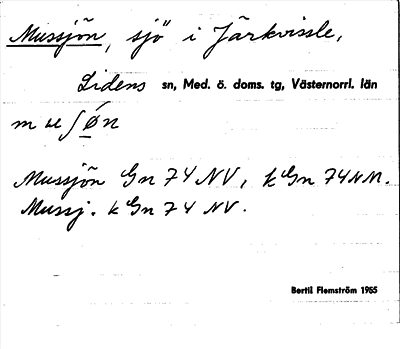 Mussjön, sjö i Järkvissle,
Lidens sn, Med. ö. doms. tg, Västernorrl. län
Mussjön Gn 74 NV, k Gn 74 NM.
Mussj. k Gn 74 NV.
Bertil Flemström 1965